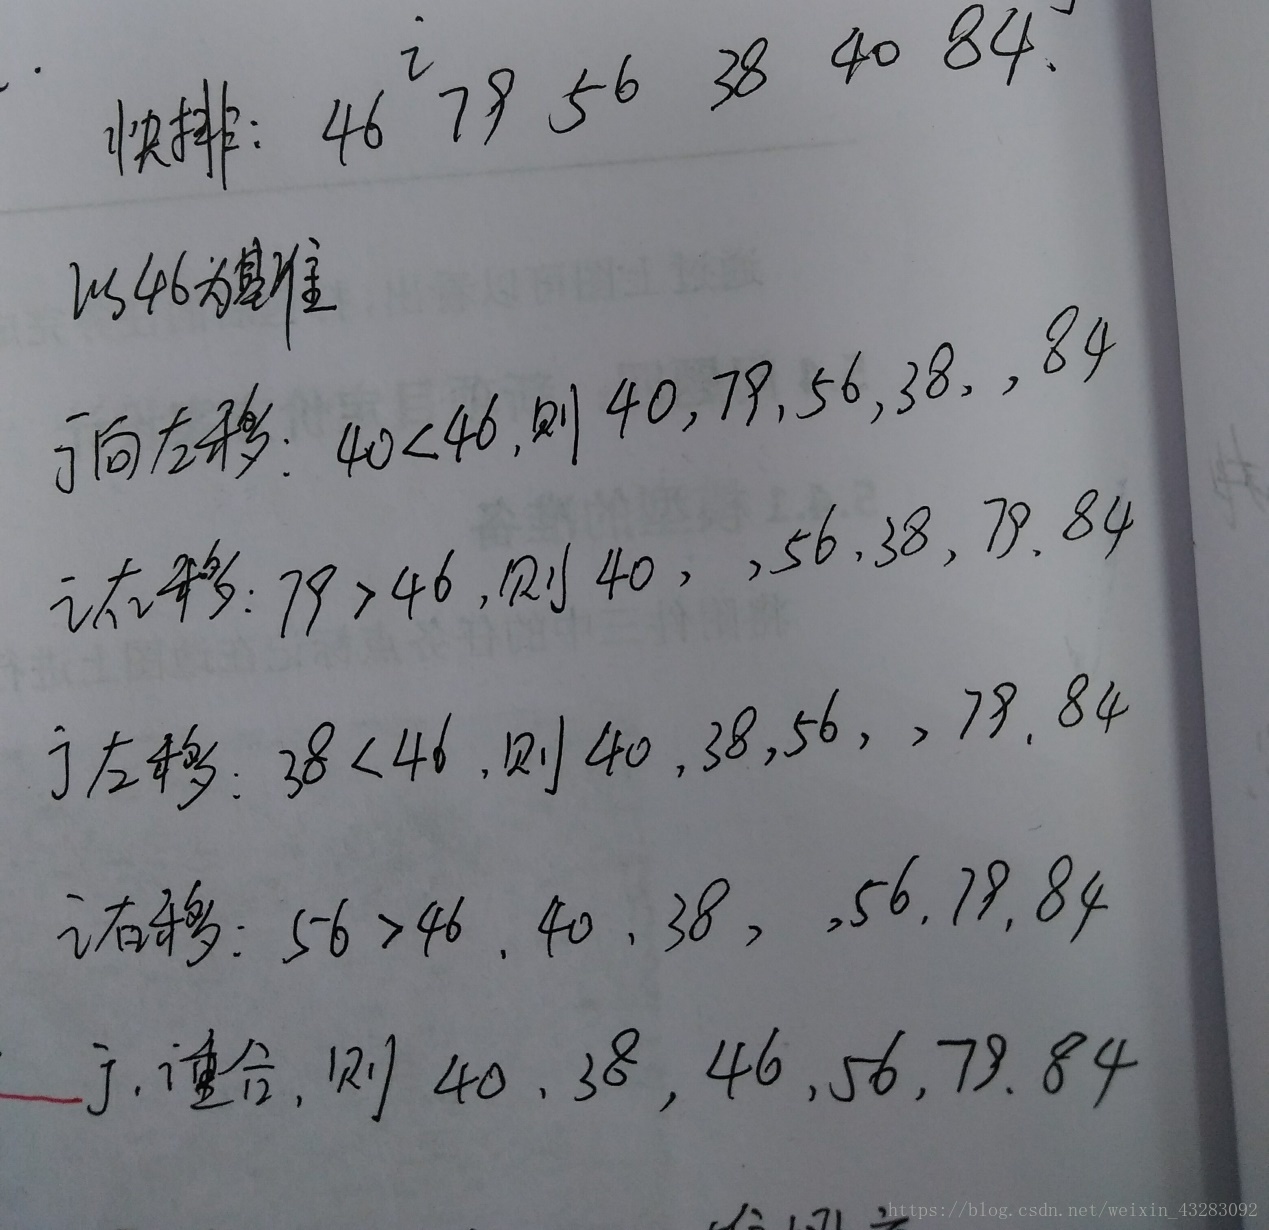 i
快排: 46 79 56 38 40 84.
以46为基准
j向左移: 40<46,则 40,79,56,38, ,84
i右移: 79>46,则 40, ,56.38,79.84
j左移: 38<46,则 40.38,56, ,79.84
i右移: 56>46.40.38, ,56.79.84
j.i重合,则 40.38,46,56,79.84
https://blog.csdn.net/weixin_43283092